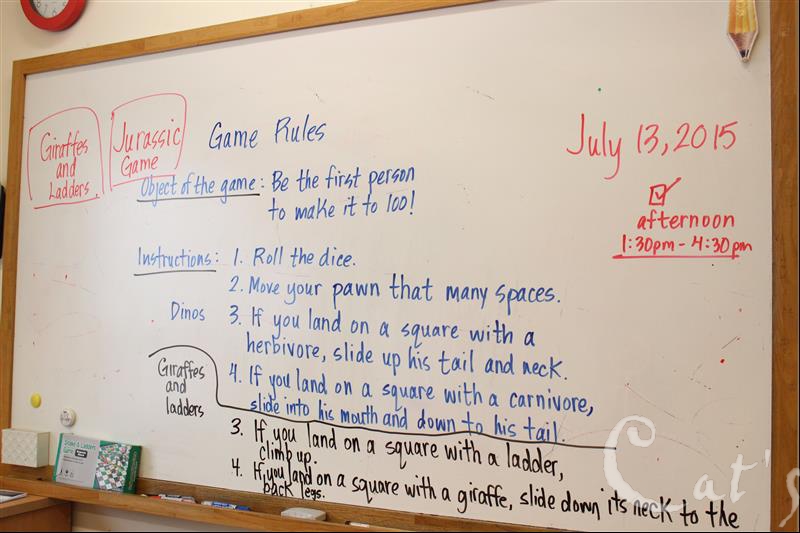 Giraffes
and
Ladders
Jurassic
Game
Game Rules
July 13, 2015
afternoon
1:30pm - 4:30pm
Object of the game: Be the first person
to make it to 100!
Instructions: 1. Roll the dice.
2. Move your pawn that many spaces.
Dinos
3. If you land on a square with a
herbivore, slide up his tail and neck.
4. If you land on a square with a carnivore,
slide into his mouth and down to his tail.
Giraffes
and
ladders
3. If you land on a square with a ladder,
climb up.
4. If you land on a square with a giraffe, slide down its neck to the
back legs.
Cat's